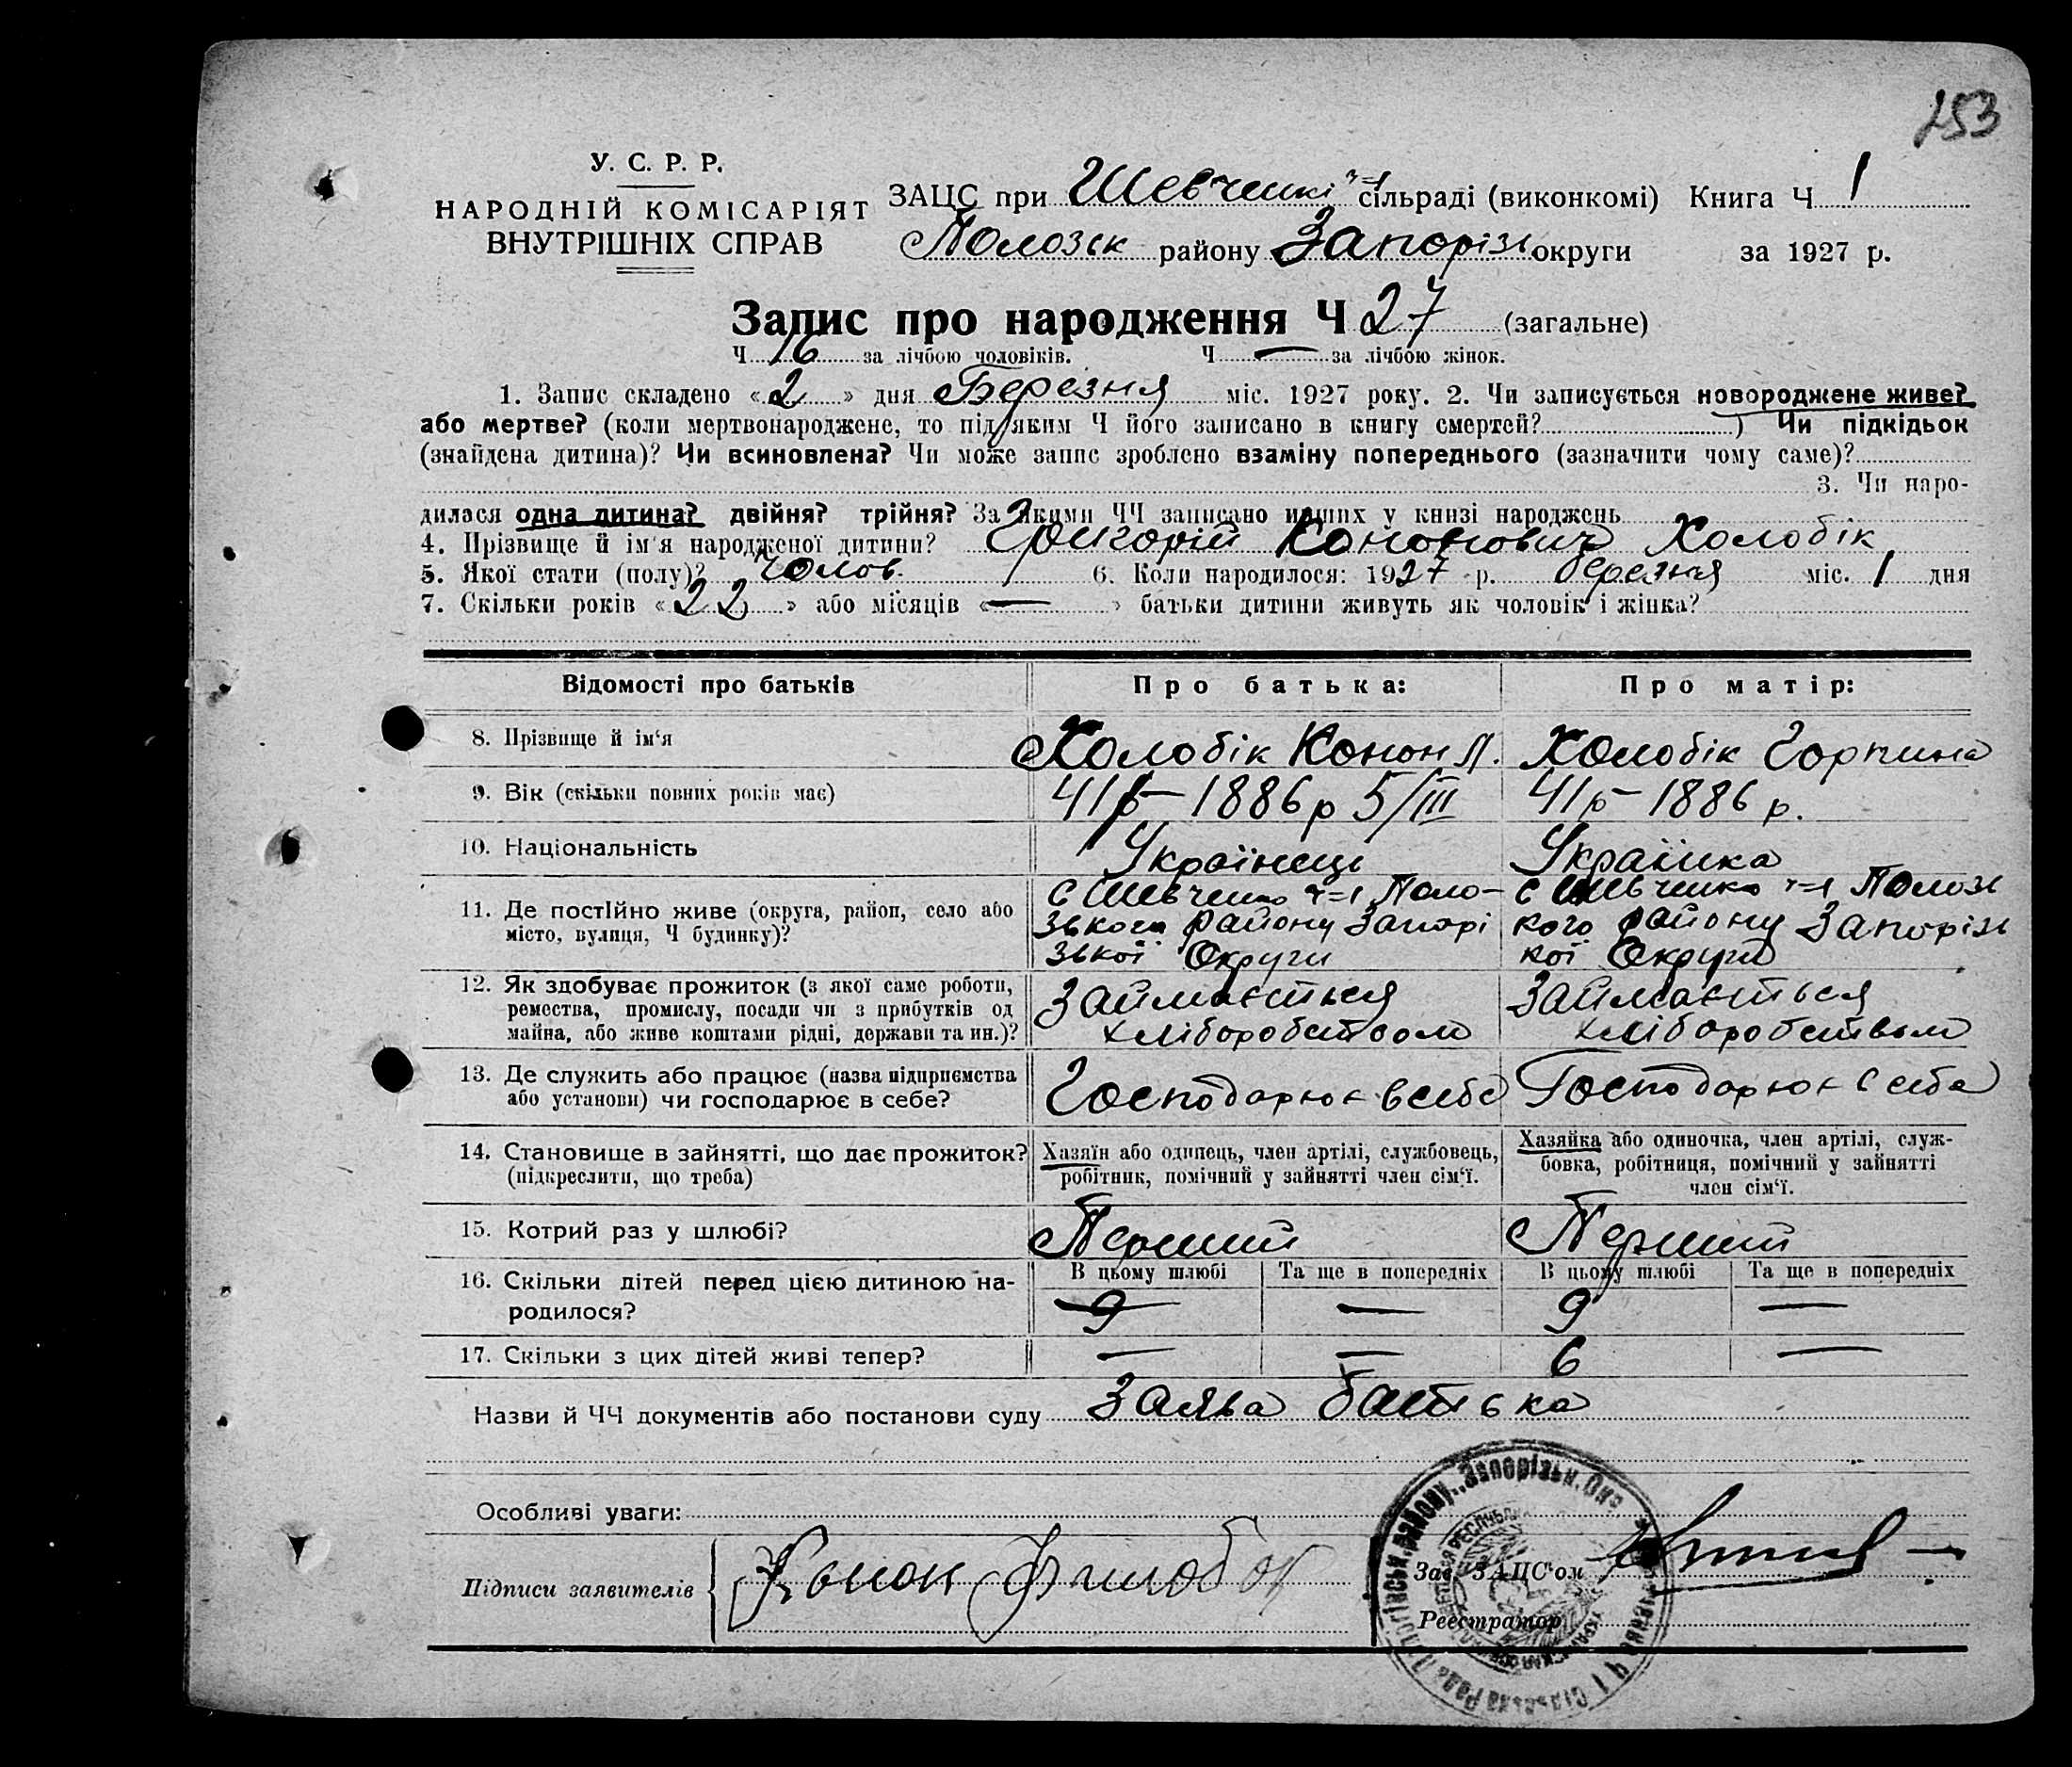 253
У. С. Р. Р.
НАРОДНІЙ КОМІСАРІЯТ
ВНУТРІШНІХ СПРАВ
ЗАЦС при Шевченкі ч=1 сільраді (виконкомі) Книга Ч 1
Полозьк району Запорізь округи за 1927 р.
Запис про народження Ч 27 (загальне)
Ч 16 за лічбою чоловіків. Ч — за лічбою жінок.
1. Запис складено «2» дня Березня міс. 1927 року. 2. Чи записується новороджене живе?
або мертве? (коли мертвонароджене, то під яким Ч його записано в книгу смертей? ) Чи підкідьок
(знайдена дитина)? Чи всиновлена? Чи може запис зроблено взаміну попереднього (зазначити чому саме)?
3. Чи наро-
дилася одна дитина? двійня? трійня? За якими ЧЧ записано инших у книзі народжень
4. Прізвище й ім'я народженої дитини? Григорій Кононович Холобік
5. Якої стати (полу)? Чолов. 6. Коли народилося: 1927 р. березня міс. 1 дня
7. Скільки років «22» або місяців «—» батьки дитини живуть як чоловік і жінка?
Відомості про батьків Про батька: Про матір:
8. Прізвище й ім'я Холобік Конон Л. Холобік Горпина
9. Вік (скільки повних років має) 41 р – 1886 р 5/III 41 р – 1886 р.
10. Національність Українець Українка
11. Де постійно живе (округа, район, село або
місто, вулиця, Ч будинку)?
с Шевченко ч=1 Поло-
зького району Запорі
зької Округи
с Шевченко ч=1 Полозь
кого району Запорізь
кої Округи
12. Як здобуває прожиток (з якої саме роботи,
ремества, промислу, посади чи з прибутків од
майна, або живе коштами рідні, держави та ин.)?
Займається
хліборобством
Займається
хліборобством
13. Де служить або працює (назва підприємства
або установи) чи господарює в себе?
Господарює в себе
Господарює в себе
14. Становище в зайнятті, що дає прожиток?
(підкреслити, що треба)
Хазяїн або одинець, член артілі, службовець,
робітник, помічний у зайнятті член сім'ї.
Хазяйка або одиночка, член артілі, служ-
бовка, робітниця, помічний у зайнятті
член сім'ї.
15. Котрий раз у шлюбі? Перший Перший
16. Скільки дітей перед цією дитиною на-
родилося?
В цьому шлюбі Та ще в попередніх В цьому шлюбі Та ще в попередніх
9 — 9 —
17. Скільки з цих дітей живі тепер? — — 6 —
Назви й ЧЧ документів або постанови суду Заява батька
Особливі уваги:
Підписи заявителів Конон
Зав. ЗАЦС'ом
Реєстратор